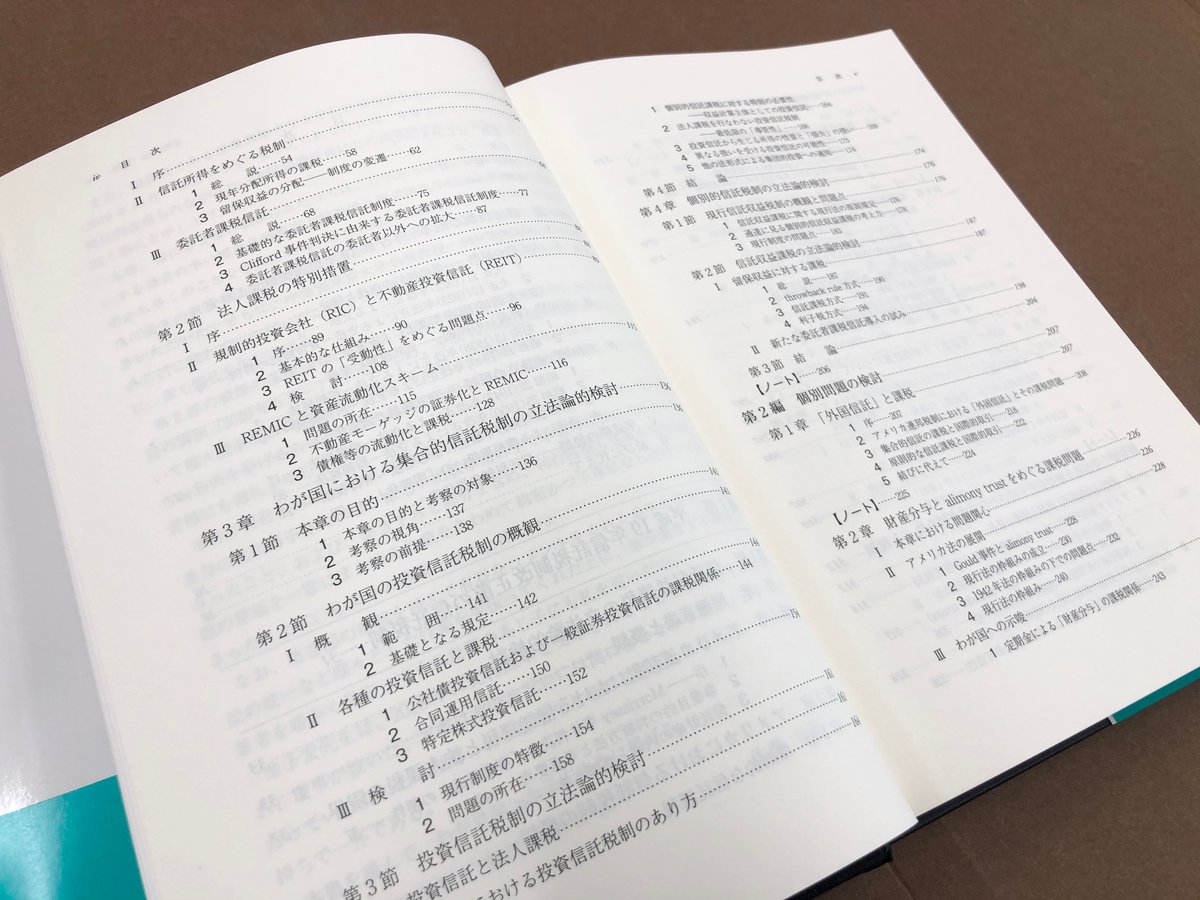 iv 目 次
Ⅰ 序
Ⅱ 信託所得をめぐる税制
1 総 説……54
2 現年分配所得の課税……58
3 留保収益の分配――制度の変遷……62
Ⅲ 委託者課税信託
1 総 説……68
2 基礎的な委託者課税信託制度……75
3 Clifford 事件判決に由来する委託者課税信託制度……77
4 委託者課税信託の委託者以外への拡大……87
第2節 法人課税の特別措置
Ⅰ 序
Ⅱ 規制的投資会社（RIC）と不動産投資信託（REIT）
1 序……89
2 基本的な仕組み……90
3 REIT の「受動性」をめぐる問題点……96
4 検 討……108
Ⅲ REMIC と資産流動化スキーム
1 問題の所在……115
2 不動産モーゲッジの証券化と REMIC……116
3 債権等の流動化と課税……128
第3章 わが国における集合的信託税制の立法論的検討
第1節 本章の目的
1 本章の目的と考察の対象……136
2 考察の視角……137
3 考察の前提……138
第2節 わが国の投資信託税制の概観
Ⅰ 概 観
1 範 囲……141
2 基礎となる規定……142
Ⅱ 各種の投資信託と課税
1 公社債投資信託および一般証券投資信託の課税関係……144
2 合同運用信託……150
3 特定株式投資信託……152
Ⅲ 検 討
1 現行制度の特徴……154
2 問題の所在……158
第3節 投資信託税制の立法論的検討
投資信託と法人課税
おける投資信託税制のあり方
目 次 v
1 個別的信託課税に対する特則の必要性
――収益計算主体としての投資信託……164
2 法人課税を行なわない投資信託税制
――最低限の「導管性」……166
3 投資信託から生じる所得の性質と「損失」の扱い……169
4 異なる扱いを受ける投資信託の可能性……173
5 他の法形式による集団的投資への適用……174
第4節 結 論……174
第4章 個別的信託税制の立法論的検討……176
第1節 現行信託収益税制の概観と問題点……176
1 信託収益課税に関する現行法の明文規定……176
2 通達に見る個別的信託収益課税の考え方……178
3 現行制度の問題点……183
第2節 信託収益課税の立法論的検討……187
Ⅰ 留保収益に対する課税……187
1 総 説……187
2 throwback rule 方式……190
3 信託課税方式……191
4 利子税方式……194
Ⅱ 新たな委託者課税信託導入の試み……198
第3節 結 論……204
【ノート】……206
第2編 個別問題の検討……207
第1章 「外国信託」と課税……207
1 序……207
2 アメリカ連邦税制における「外国信託」とその課税問題……208
3 集合的信託の課税と国際的取引……216
4 原則的な信託課税と国際的取引……222
5 結びに代えて……224
【ノート】……225
第2章 財産分与と alimony trust をめぐる課税問題……226
Ⅰ 本章における問題関心……226
Ⅱ アメリカ法の展開……228
1 Gould 事件と alimony trust……228
2 現行法の枠組みの成立……230
3 1942 年法の枠組みの下での問題点……232
4 現行法の枠組み……240
Ⅲ わが国への示唆……243
1 定期金による「財産分与」の課税関係